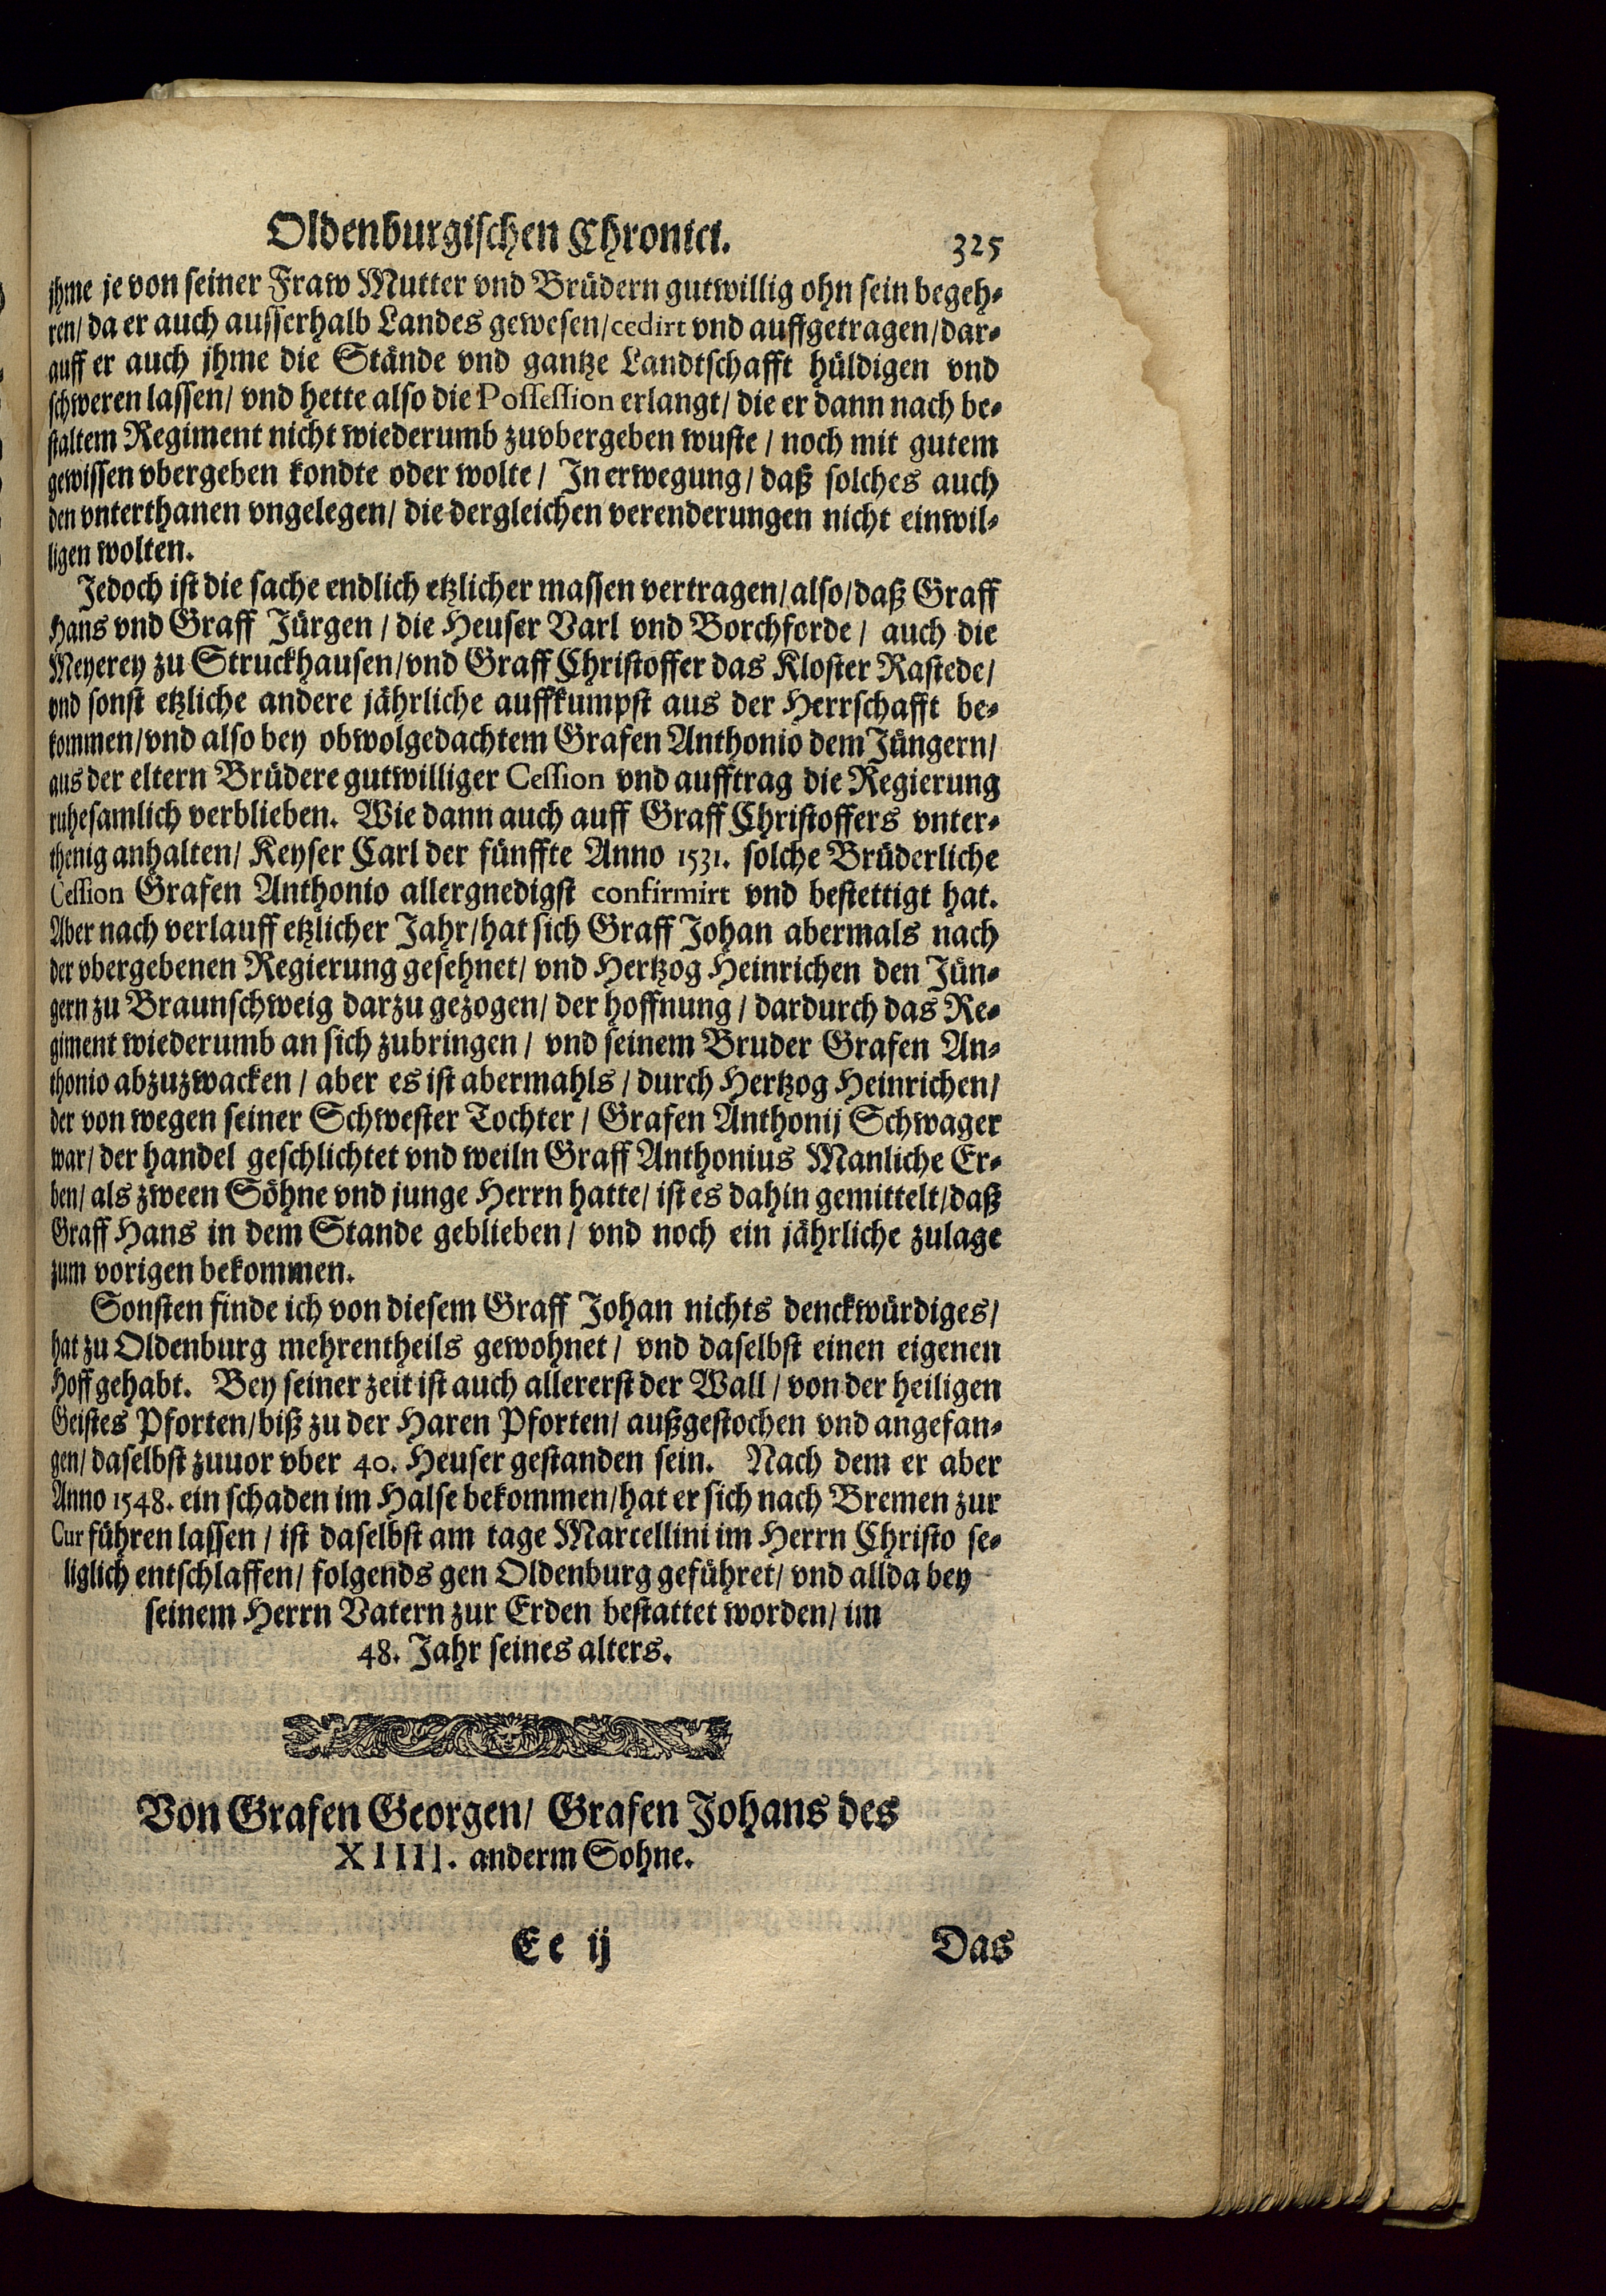 Oldenburgischen Chronici. 325
jhme je von seiner Fraw Mutter vnd Brüdern gutwillig ohn sein begeh-
ren/ da er auch ausserhalb Landes gewesen/ cedirt vnd auffgetragen/ dar-
auff er auch jhme die Stände vnd gantze Landtschafft hüldigen vnd
schweren lassen/ vnd hette also die Possession erlangt/ die er dann nach be-
staltem Regiment nicht wiederumb zuvbergeben wuste/ noch mit gutem
gewissen vbergeben kondte oder wolte/ In erwegung/ daß solches auch
den vnterthanen vngelegen/ die dergleichen verenderungen nicht einwil-
ligen wolten.
Jedoch ist die sache endlich etzlicher massen vertragen/ also/ daß Graff
Hans vnd Graff Jürgen/ die Heuser Varl vnd Borchforde/ auch die
Meyerey zu Struckhausen/ vnd Graff Christoffer das Kloster Rastede/
vnd sonst etzliche andere jährliche auffkumpst aus der Herrschafft be-
kommen/ vnd also bey obwolgedachtem Grafen Anthonio dem Jüngern/
aus der eltern Brüdere gutwilliger Cession vnd aufftrag die Regierung
ruhesamlich verblieben. Wie dann auch auff Graff Christoffers vnter-
thenig anhalten/ Keyser Carl der fünffte Anno 1531. solche Brüderliche
Cession Grafen Anthonio allergnedigst confirmirt vnd bestettigt hat.
Aber nach verlauff etzlicher Jahr/ hat sich Graff Johan abermals nach
der vbergebenen Regierung gesehnet/ vnd Hertzog Heinrichen den Jün-
gern zu Braunschweig darzu gezogen/ der hoffnung/ dardurch das Re-
giment wiederumb an sich zubringen/ vnd seinem Bruder Grafen An-
thonio abzuzwacken/ aber es ist abermahls/ durch Hertzog Heinrichen/
der von wegen seiner Schwester Tochter/ Grafen Anthonij Schwager
war/ der handel geschlichtet vnd weiln Graff Anthonius Manliche Er-
ben/ als zween Söhne vnd junge Herrn hatte/ ist es dahin gemittelt/ daß
Graff Hans in dem Stande geblieben/ vnd noch ein jährliche zulage
zum vorigen bekommen.
Sonsten finde ich von diesem Graff Johan nichts denckwürdiges/
hat zu Oldenburg mehrentheils gewohnet/ vnd daselbst einen eigenen
Hoff gehabt. Bey seiner zeit ist auch allererst der Wall/ von der heiligen
Geistes Pforten/ biß zu der Haren Pforten/ außgestochen vnd angefan-
gen/ daselbst zuuor vber 40. Heuser gestanden sein. Nach dem er aber
Anno 1548. ein schaden im Halse bekommen/ hat er sich nach Bremen zur
Cur führen lassen/ ist daselbst am tage Marcellini im Herrn Christo se-
liglich entschlaffen/ folgends gen Oldenburg geführet/ vnd allda bey
seinem Herrn Vatern zur Erden bestattet worden/ im
48. Jahr seines alters.
Von Grafen Georgen/ Grafen Johans des
XIIII. anderm Sohne.
Ee ij Das